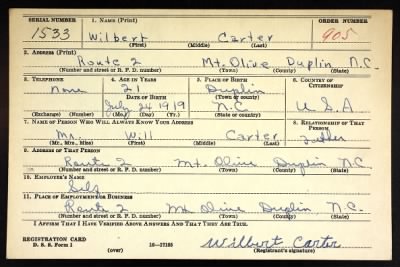 SERIAL NUMBER 1. NAME (Print) ORDER NUMBER
1533 Wilbert Carter 905
(First) (Middle) (Last)
2. ADDRESS (Print)
Route 2 Mt. Olive Duplin N.C.
(Number and street or R. F. D. number) (Town) (County) (State)
3. TELEPHONE 4. AGE IN YEARS 5. PLACE OF BIRTH 6. COUNTRY OF CITIZENSHIP
none 21 Duplin
DATE OF BIRTH (Town or county)
July 24 1919 N.C U.S.A
(Exchange) (Number) (Mo.) (Day) (Yr.) (State or country)
7. NAME OF PERSON WHO WILL ALWAYS KNOW YOUR ADDRESS 8. RELATIONSHIP OF THAT PERSON
Mr. Will Carter Father
(Mr., Mrs., Miss) (First) (Middle) (Last)
9. ADDRESS OF THAT PERSON
Route 2 Mt. Olive Duplin N.C
(Number and street or R. F. D. number) (Town) (County) (State)
10. EMPLOYER'S NAME
Self
11. PLACE OF EMPLOYMENT OR BUSINESS
Route 2 Mt Olive Duplin N.C.
(Number and street or R. F. D. number) (Town) (County) (State)
I AFFIRM THAT I HAVE VERIFIED ABOVE ANSWERS AND THAT THEY ARE TRUE.
REGISTRATION CARD
D. S. S. Form 1 (over) 16-17105 Wilbert Carter
(Registrant's signature)